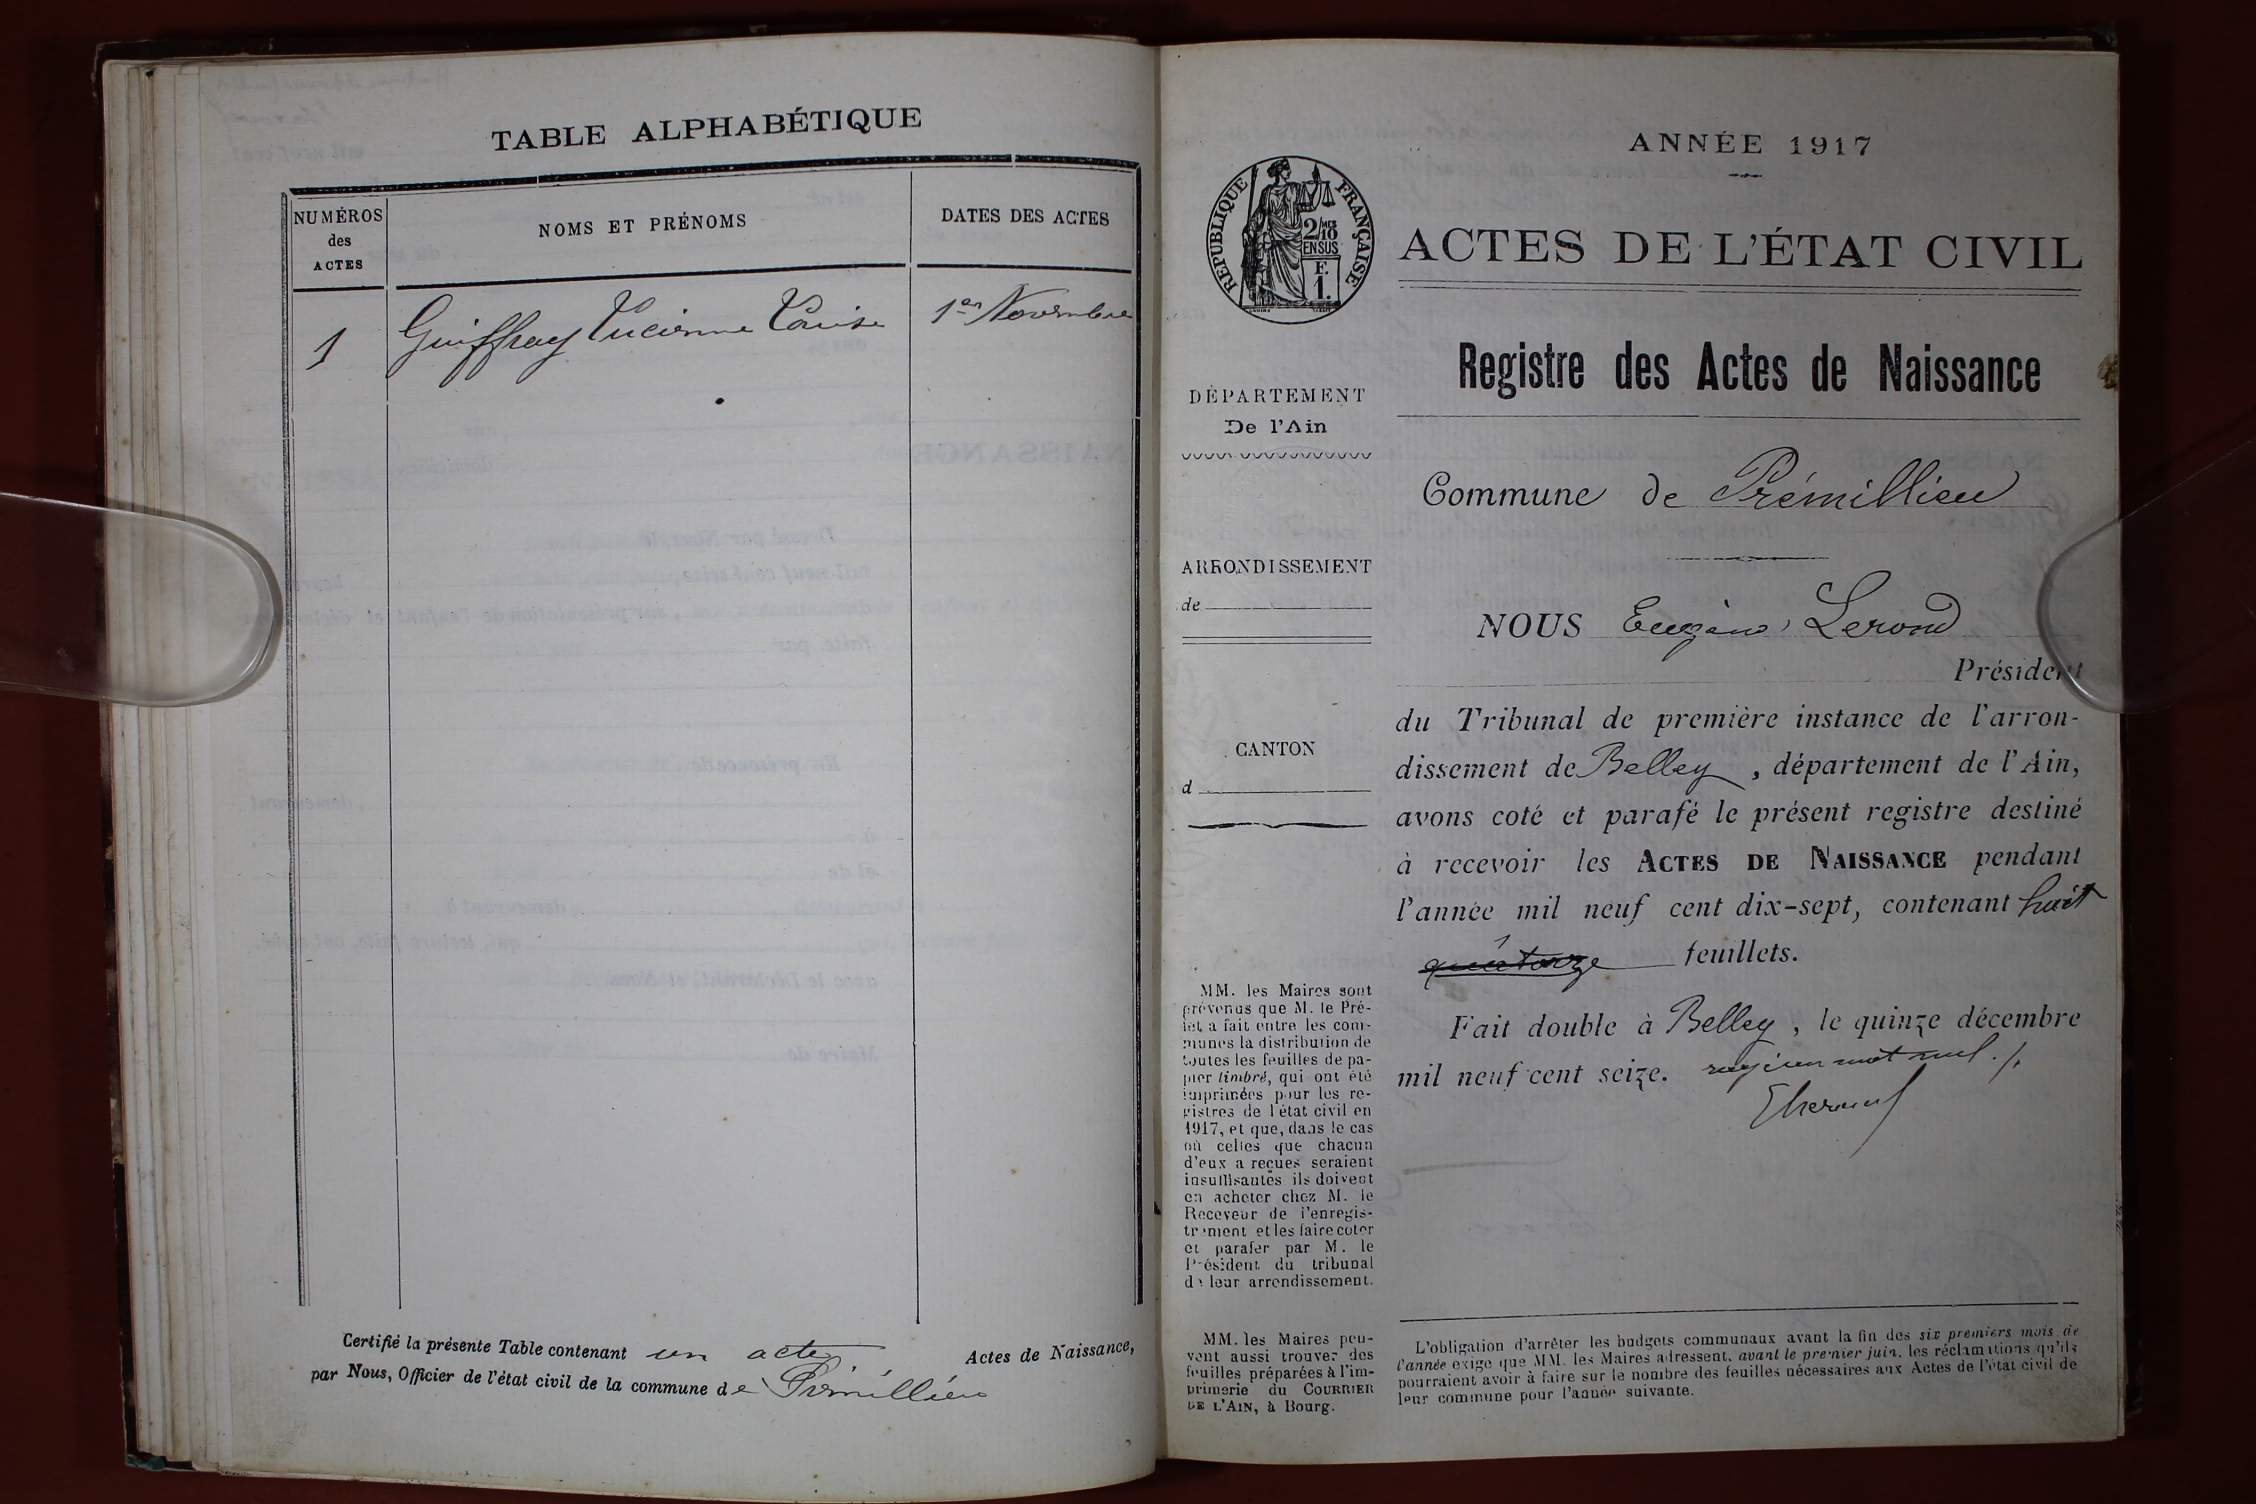 TABLE ALPHABÉTIQUE
NUMÉROS
des
ACTES
NOMS ET PRÉNOMS
DATES DES ACTES
1
Guiffray Lucienne Louise
1er Novembre
Certifié la présente Table contenant un acte Actes de Naissance,
par Nous, Officier de l'état civil de la commune de Prémillieu
ANNÉE 1917
RÉPUBLIQUE FRANÇAISE
2/10 MES
EN SUS
F.
1.
ACTES DE L'ÉTAT CIVIL
Registre des Actes de Naissance
DÉPARTEMENT
De l'Ain
ARRONDISSEMENT
de
CANTON
d
MM. les Maires sont
prévenus que M. le Pré-
fet a fait entre les com-
munes la distribution de
toutes les feuilles de pa-
pier timbré, qui ont été
imprimées pour les re-
gistres de l'état civil en
1917, et que, dans le cas
où celles que chacun
d'eux a reçues seraient
insuffisantes ils doivent
en acheter chez M. le
Receveur de l'enregis-
trement et les faire coter
et parafer par M. le
Président du tribunal
de leur arrondissement.
MM. les Maires peu-
vent aussi trouver des
feuilles préparées à l'im-
primerie du COURRIER
DE L'AIN, à Bourg.
Commune de Prémillieu
NOUS Eugène Lerond
Président
du Tribunal de première instance de l'arron-
dissement de Belley, département de l'Ain,
avons coté et parafé le présent registre destiné
à recevoir les ACTES DE NAISSANCE pendant
l'année mil neuf cent dix-sept, contenant huit
quatorze feuillets.
Fait double à Belley, le quinze décembre
mil neuf cent seize. rayé un mot nul ./.
L'obligation d'arrêter les budgets communaux avant la fin des six premiers mois de
l'année exige que MM. les Maires adressent, avant le premier juin, les réclamations qu'ils
pourraient avoir à faire sur le nombre des feuilles nécessaires aux Actes de l'état civil de
leur commune pour l'année suivante.